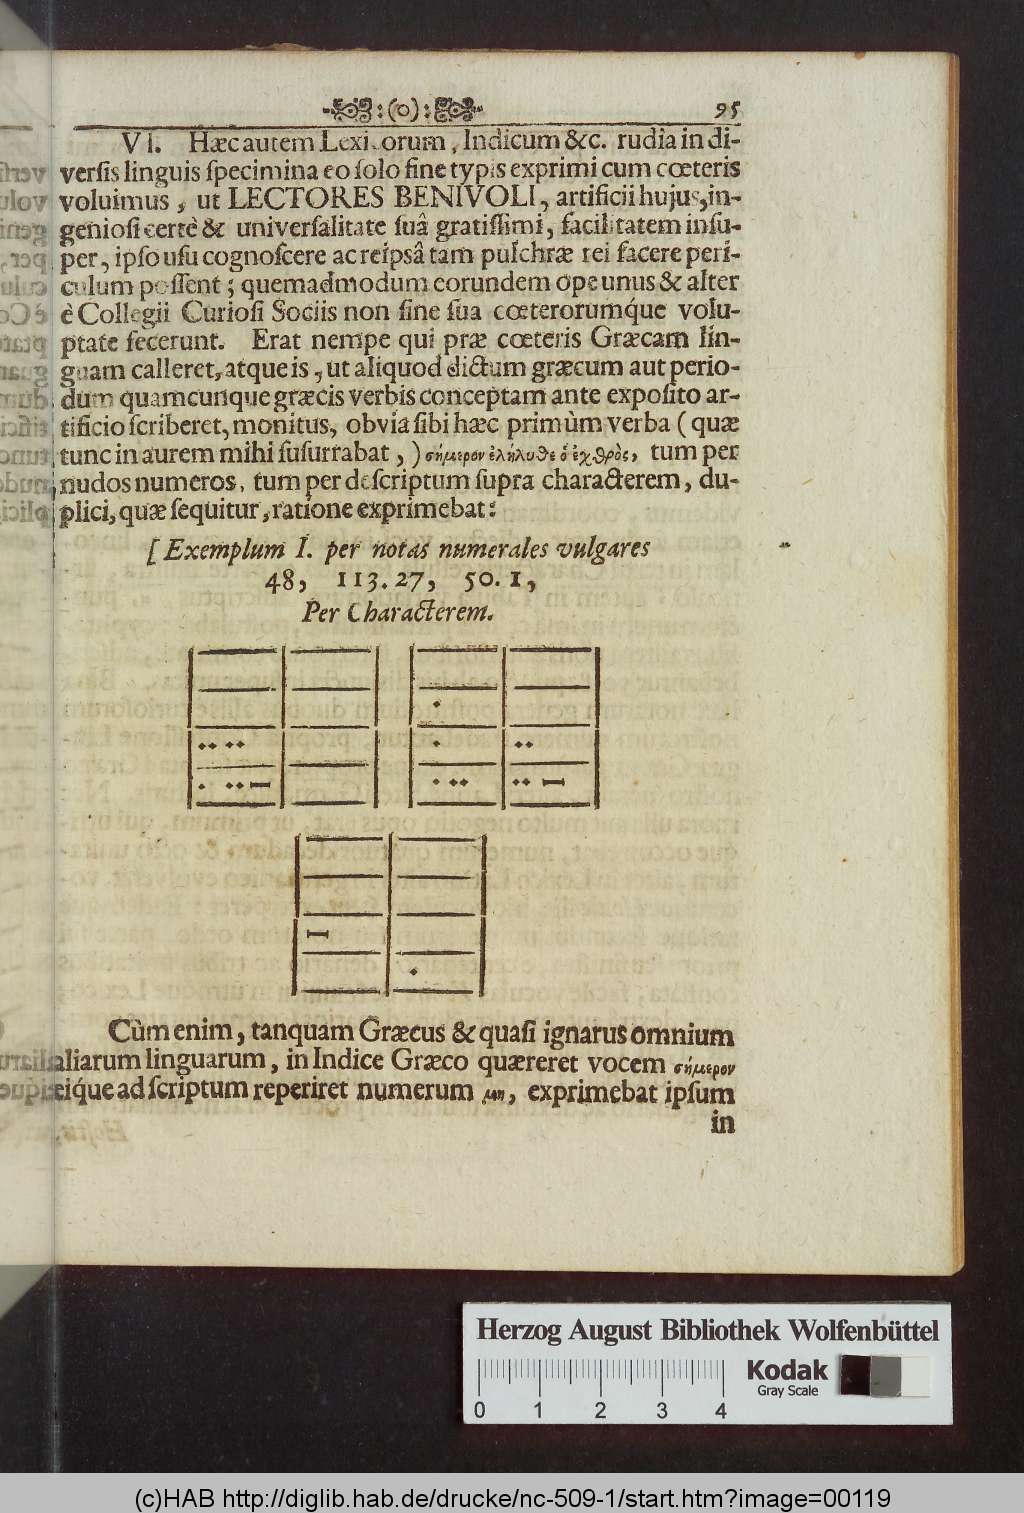 :(o): 95
VI. Hæc autem Lexicorum, Indicum &c. rudia in di-
verſis linguis ſpecimina eo ſolo fine typis exprimi cum cœteris
voluimus, ut LECTORES BENIVOLI, artificii hujus, in-
genioſi certè & univerſalitate ſuâ gratiſſimi, facilitatem inſu-
per, ipſo uſu cognoſcere ac reipsâ tam pulchræ rei facere peri-
culum poſſent; quemadmodum eorundem ope unus & alter
è Collegii Curioſi Sociis non ſine ſua cœterorumq́ue volu-
ptate fecerunt. Erat nempe qui præ cœteris Græcam lin-
guam calleret, atque is, ut aliquod dictum græcum aut perio-
dum quamcunque græcis verbis conceptam ante expoſito ar-
tificio ſcriberet, monitus, obvia ſibi hæc primùm verba (quæ
tunc in aurem mihi ſuſurrabat,) σήμερον ἐλήλυθε ὁ ἐχθρὸς, tum per
nudos numeros, tum per deſcriptum ſupra characterem, du-
plici, quæ ſequitur, ratione exprimebat:
[Exemplum I. per notas numerales vulgares
48, 113. 27, 50. 1,
Per Characterem.
Cùm enim, tanquam Græcus & quaſi ignarus omnium
aliarum linguarum, in Indice Græco quæreret vocem σήμερον
eiq́ue ad ſcriptum reperiret numerum μη, exprimebat ipſum
in
Herzog August Bibliothek Wolfenbüttel
Kodak
Gray Scale
0 1 2 3 4
(c)HAB http://diglib.hab.de/drucke/nc-509-1/start.htm?image=00119